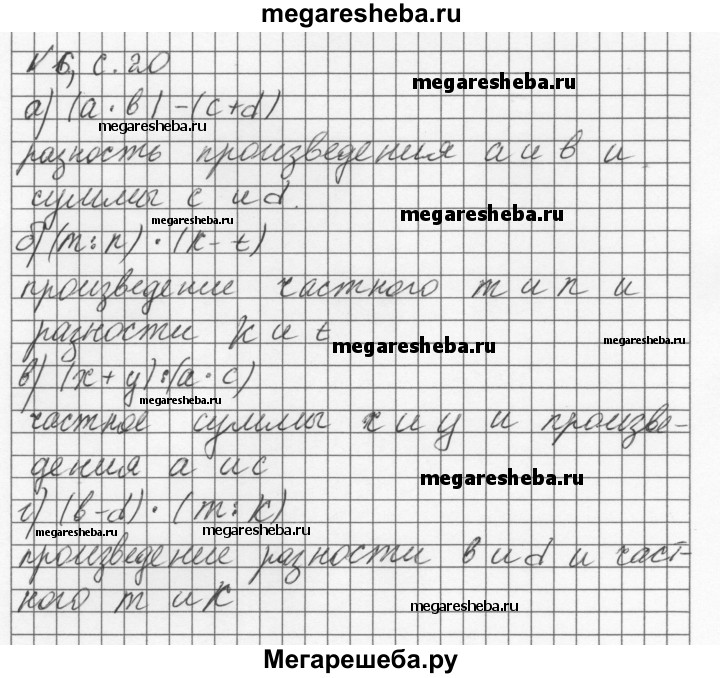 megaresheba.ru
№6, с. 20
megaresheba.ru
а) (a · b) - (c + d)
megaresheba.ru
разность произведения a и b и
суммы c и d.
megaresheba.ru
megaresheba.ru
б) (m : n) · (k - t)
произведение частного m и n и
разности k и t
megaresheba.ru
megaresheba.ru
в) (x + y) : (a · c)
megaresheba.ru
частное суммы x и y и произве-
дения a и c
megaresheba.ru
г) (b - d) · (m : k)
megaresheba.ru
megaresheba.ru
произведение разности b и d и част-
ного m и k
megaresheba.ru
Мегарешеба.ру